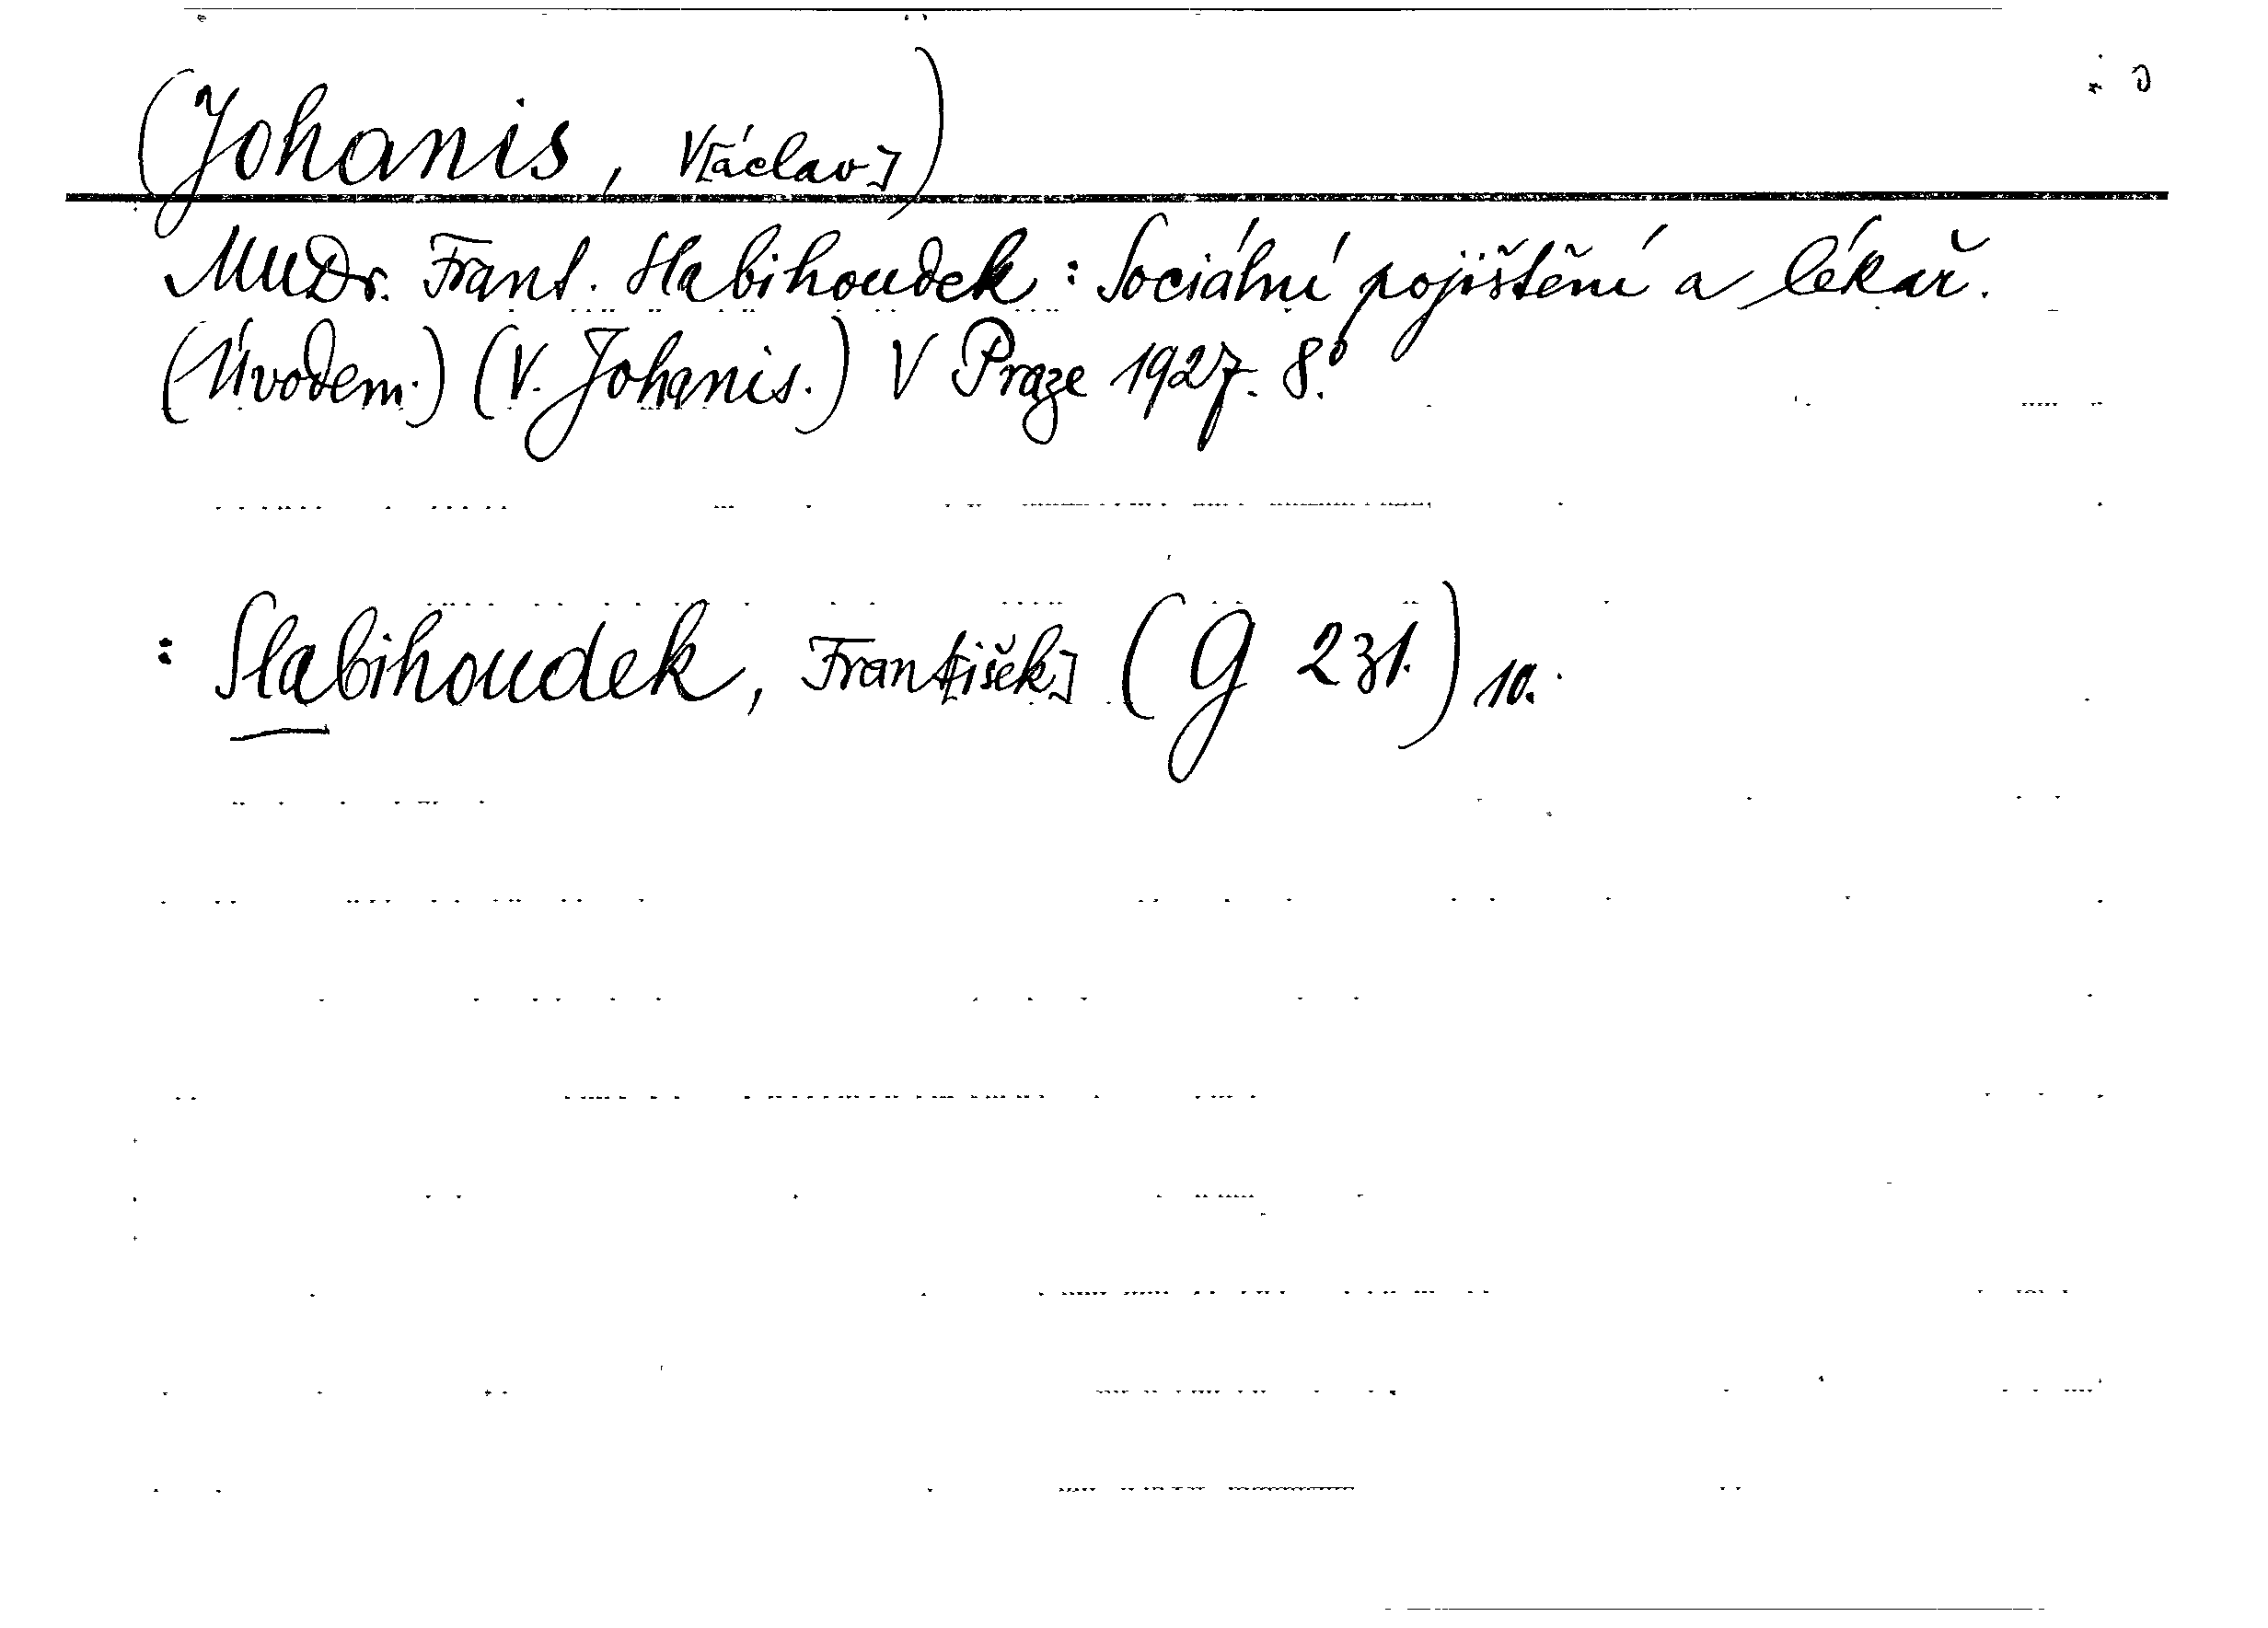 (Johanis, V[áclav])
MUDr. Frant. Slabihoudek: Sociální pojištění a lékař.
(Úvodem.) (V. Johanis.) V Praze 1927. 8.°
: Slabihoudek, Frant[išek] (G 231.) 10.